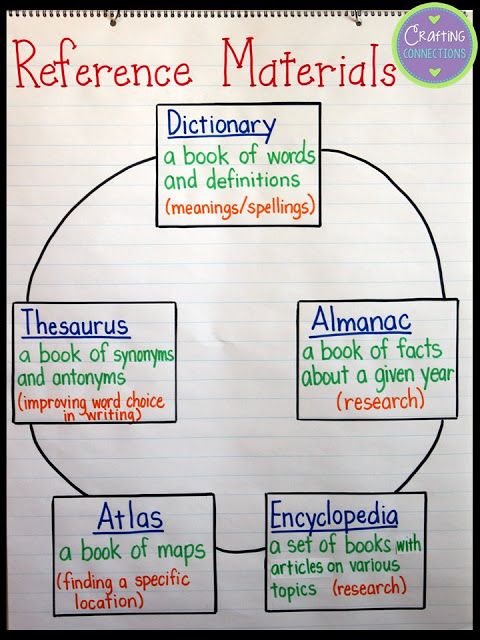 Crafting
CONNECTIONS
Reference Materials
Dictionary
a book of words
and definitions
(meanings/spellings)
Thesaurus
a book of synonyms
and antonyms
(improving word choice
in writing)
Almanac
a book of facts
about a given year
(research)
Atlas
a book of maps
(finding a specific
location)
Encyclopedia
a set of books with
articles on various
topics (research)